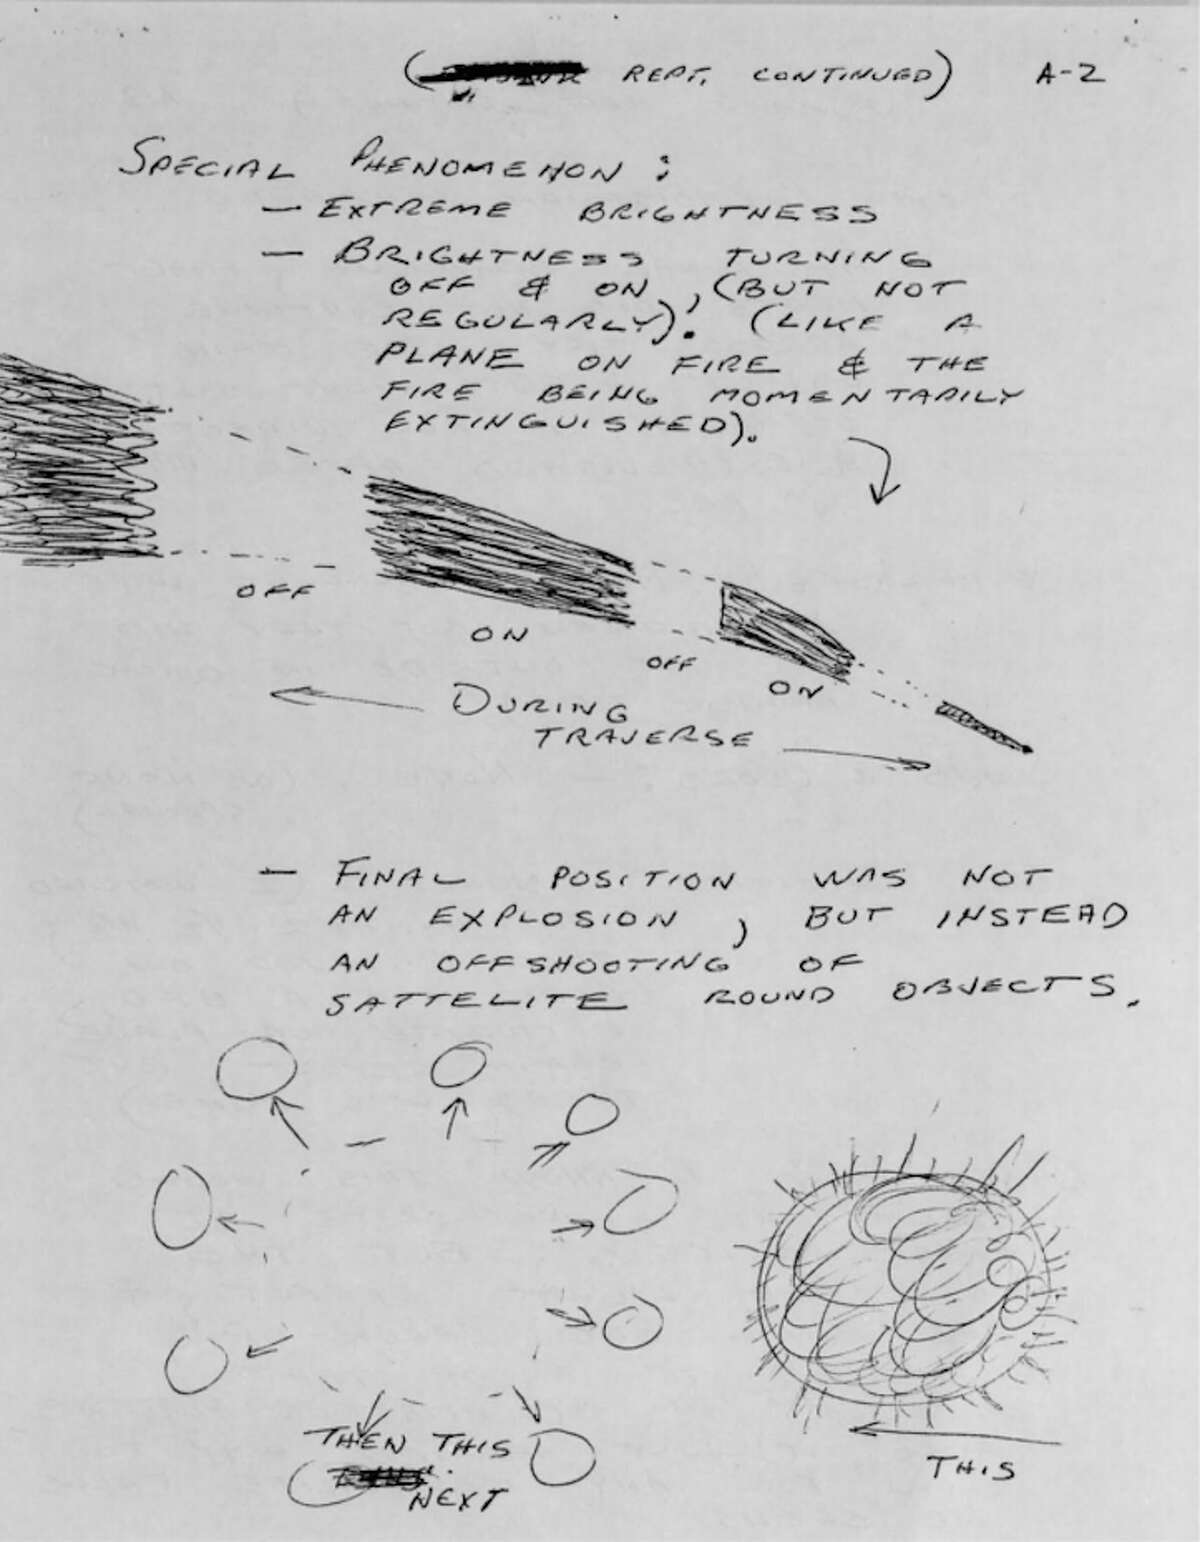 ( REPT. CONTINUED) A-2
SPECIAL PHENOMENON :
— EXTREME BRIGHTNESS
— BRIGHTNESS TURNING
OFF & ON, (BUT NOT
REGULARLY). (LIKE A
PLANE ON FIRE & THE
FIRE BEING MOMENTARILY
EXTINGUISHED).
OFF
ON
OFF
ON
DURING
TRAVERSE
— FINAL POSITION WAS NOT
AN EXPLOSION, BUT INSTEAD
AN OFFSHOOTING OF
SATTELITE ROUND OBJECTS.
THEN THIS
NEXT
THIS